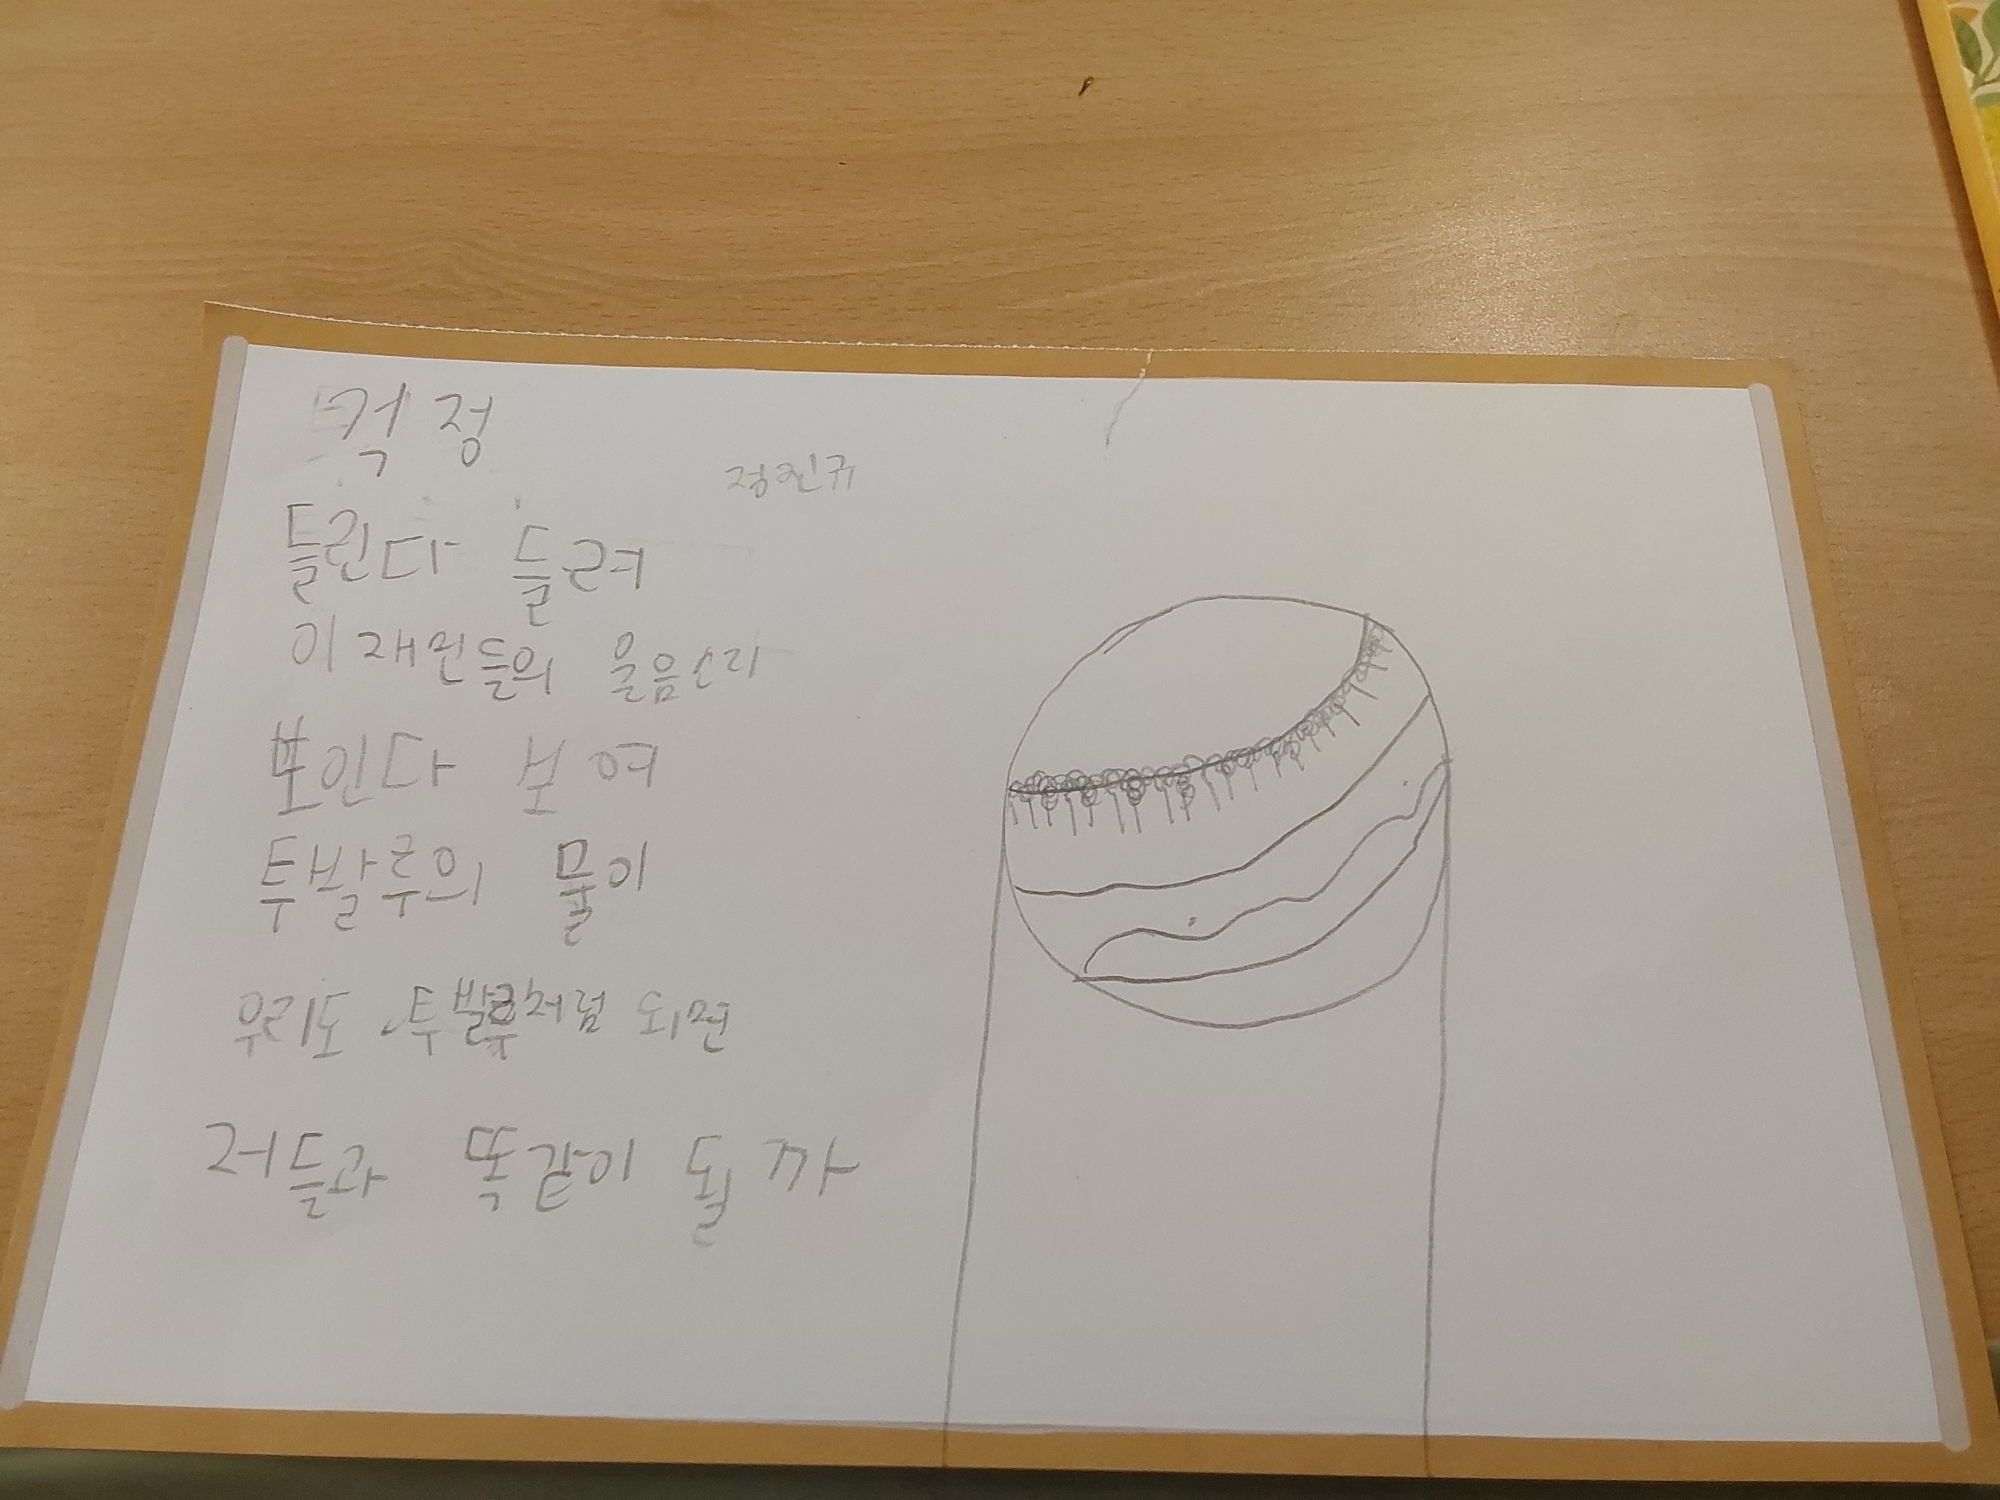 걱정
정진규
들린다 들려
이재민들의 울음소리
보인다 보여
투발루의 물이
우리도 투발루처럼 되면
저들과 똑같이 될까